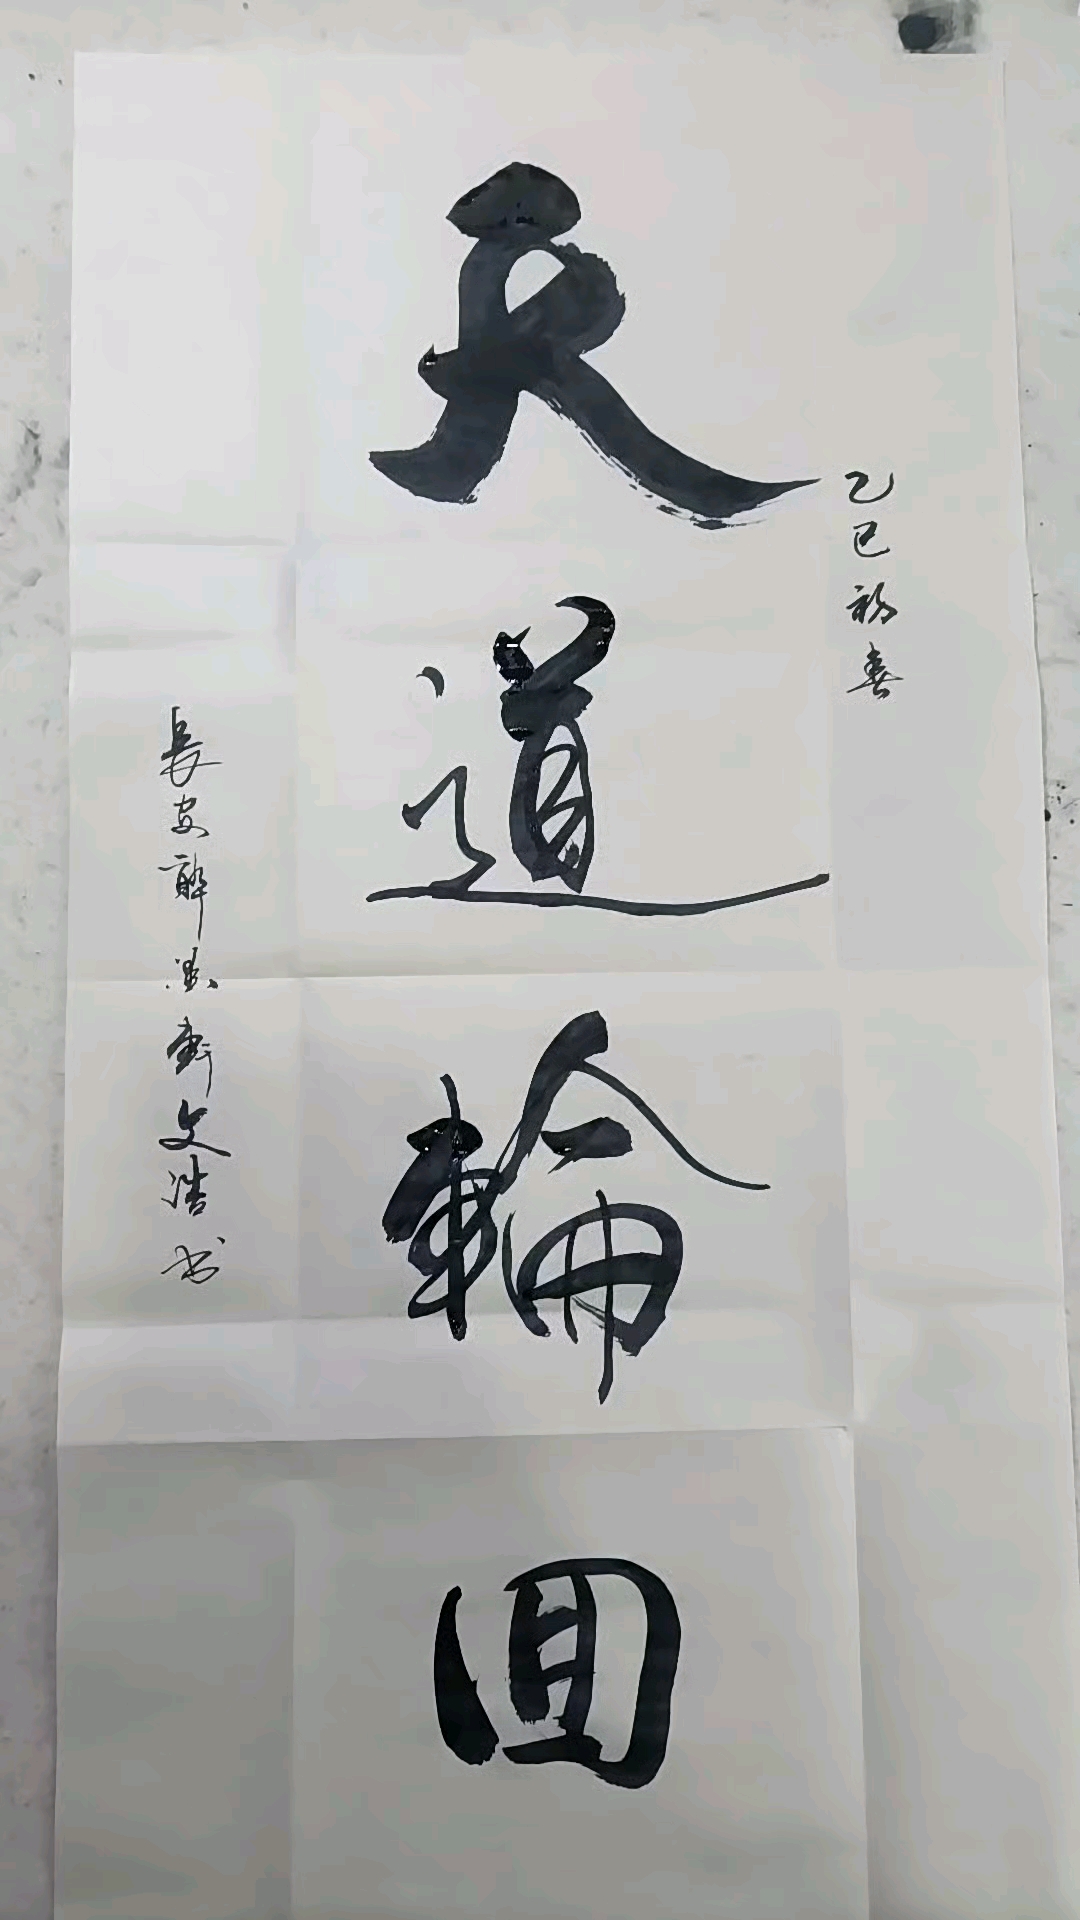 乙巳初春
天道輪回
長安醉墨軒文浩书